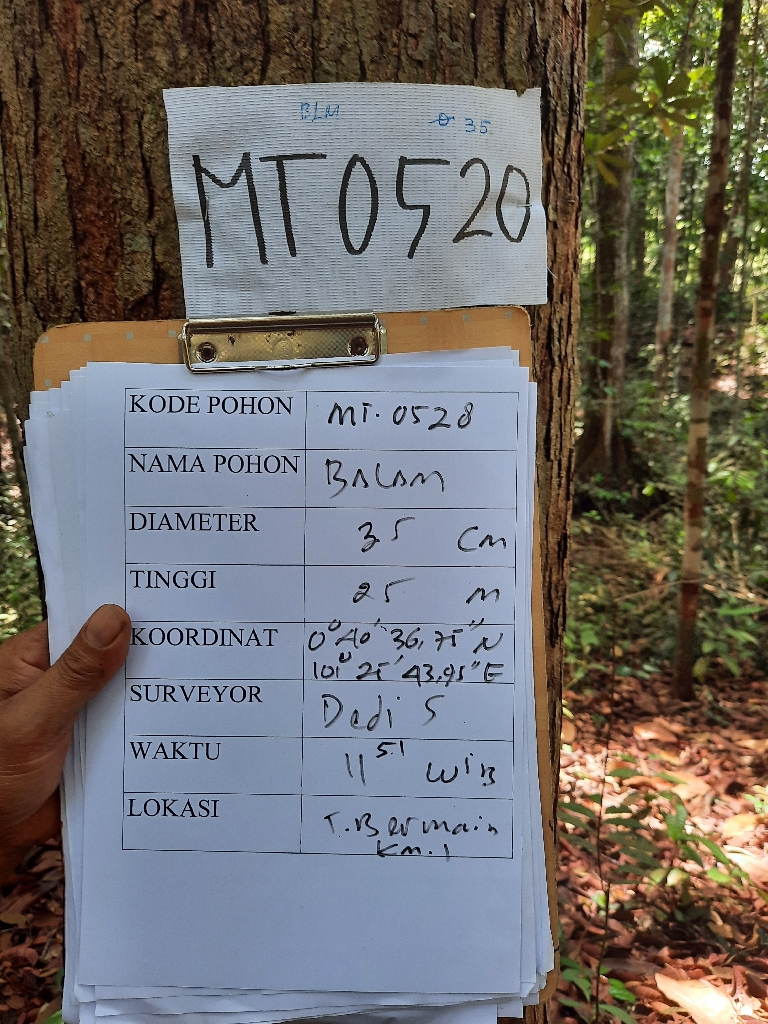 BLM ϴ 35
MT0520
KODE POHON MT. 0528
NAMA POHON BALAM
DIAMETER 35 Cm
TINGGI 25 m
KOORDINAT 0° 40' 36,75" N
101° 25' 43,95" E
SURVEYOR Dedi S
WAKTU 11 51 WIB
LOKASI T. Bermain
Km. 1